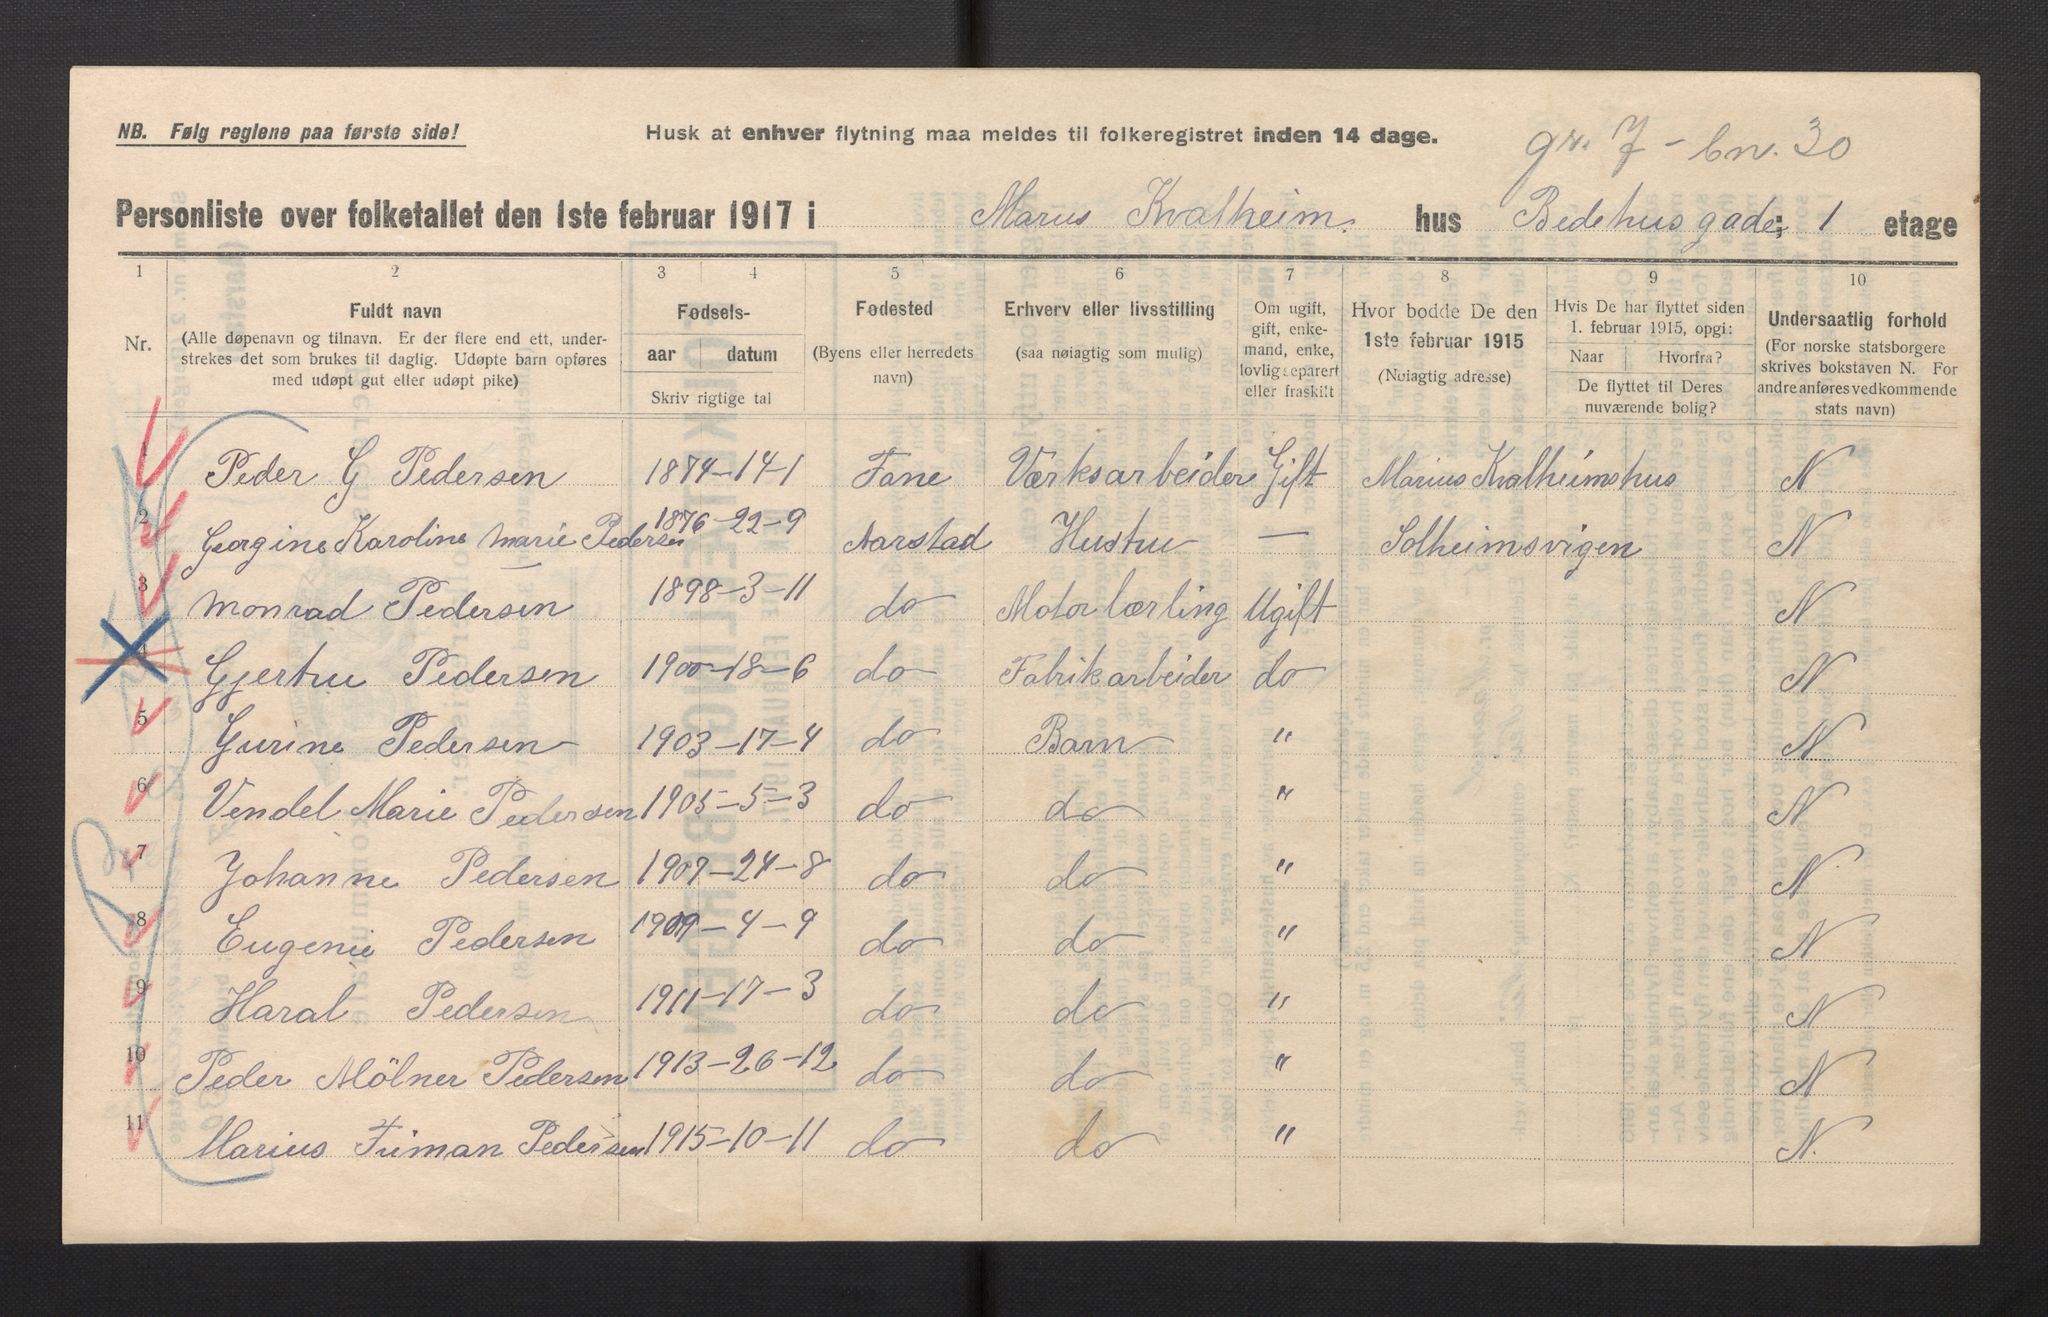 NB. Følg reglene paa første side!
Husk at enhver flytning maa meldes til folkeregistret inden 14 dage.
gr. 7 – bn. 30
Personliste over folketallet den 1ste februar 1917 i Marus Kvalheim. hus Bedehusgade; 1 etage
1 2 3 4 5 6 7 8 9 10
Nr.
Fuldt navn
(Alle døpenavn og tilnavn. Er der flere end ett, under-
strekes det som brukes til daglig. Udøpte barn opføres
med udøpt gut eller udøpt pike)
Fødsels-
aar datum
Skriv rigtige tal
Fødested
(Byens eller herredets
navn)
Erhverv eller livsstilling
(saa nøiagtig som mulig)
Om ugift,
gift, enke-
mand, enke,
lovlig separert
eller fraskilt
Hvor bodde De den
1ste februar 1915
(Nøiagtig adresse)
Hvis De har flyttet siden
1. februar 1915, opgi:
Naar Hvorfra?
De flyttet til Deres
nuværende bolig?
Undersaatlig forhold
(For norske statsborgere
skrives bokstaven N. For
andre anføres vedkommende
stats navn)
1 Peder G Pedersen 1874–14–1 Fane Værksarbeider Gift Marius Kvalheimshus N
2 Georgine Karoline Marie Pedersen 1876–22–9 Aarstad Hustru — Solheimsvigen N
3 Monrad Pedersen 1898–3–11 do Motorlærling Ugift N
4 Gjertru Pedersen 1900–18–6 do Fabrikarbeider do N
5 Gurine Pedersen 1903–17–4 do Barn " N
6 Vendel Marie Pedersen 1905–5–3 do do " N
7 Johanne Pedersen 1907–24–8 do do " N
8 Eugenie Pedersen 1909–4–9 do do " N
9 Haral Pedersen 1911–17–3 do do " N
10 Peder Mölner Pedersen 1913–26–12 do do " N
11 Marius Fuman Pedersen 1915–10–11 do do " N.